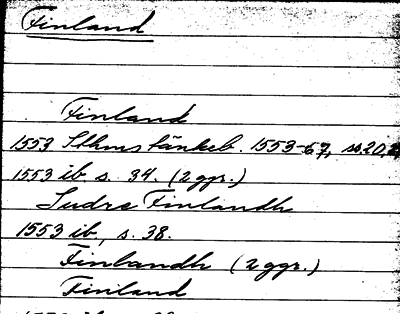 Finland
Finland
1553 Sthms tänkeb. 1553-67, ss. 20, 2
1553 ib. s. 34. (2 ggr.)
Sudre Finlandh
1553 ib., s. 38.
Finlandh (2 ggr.)
Finland